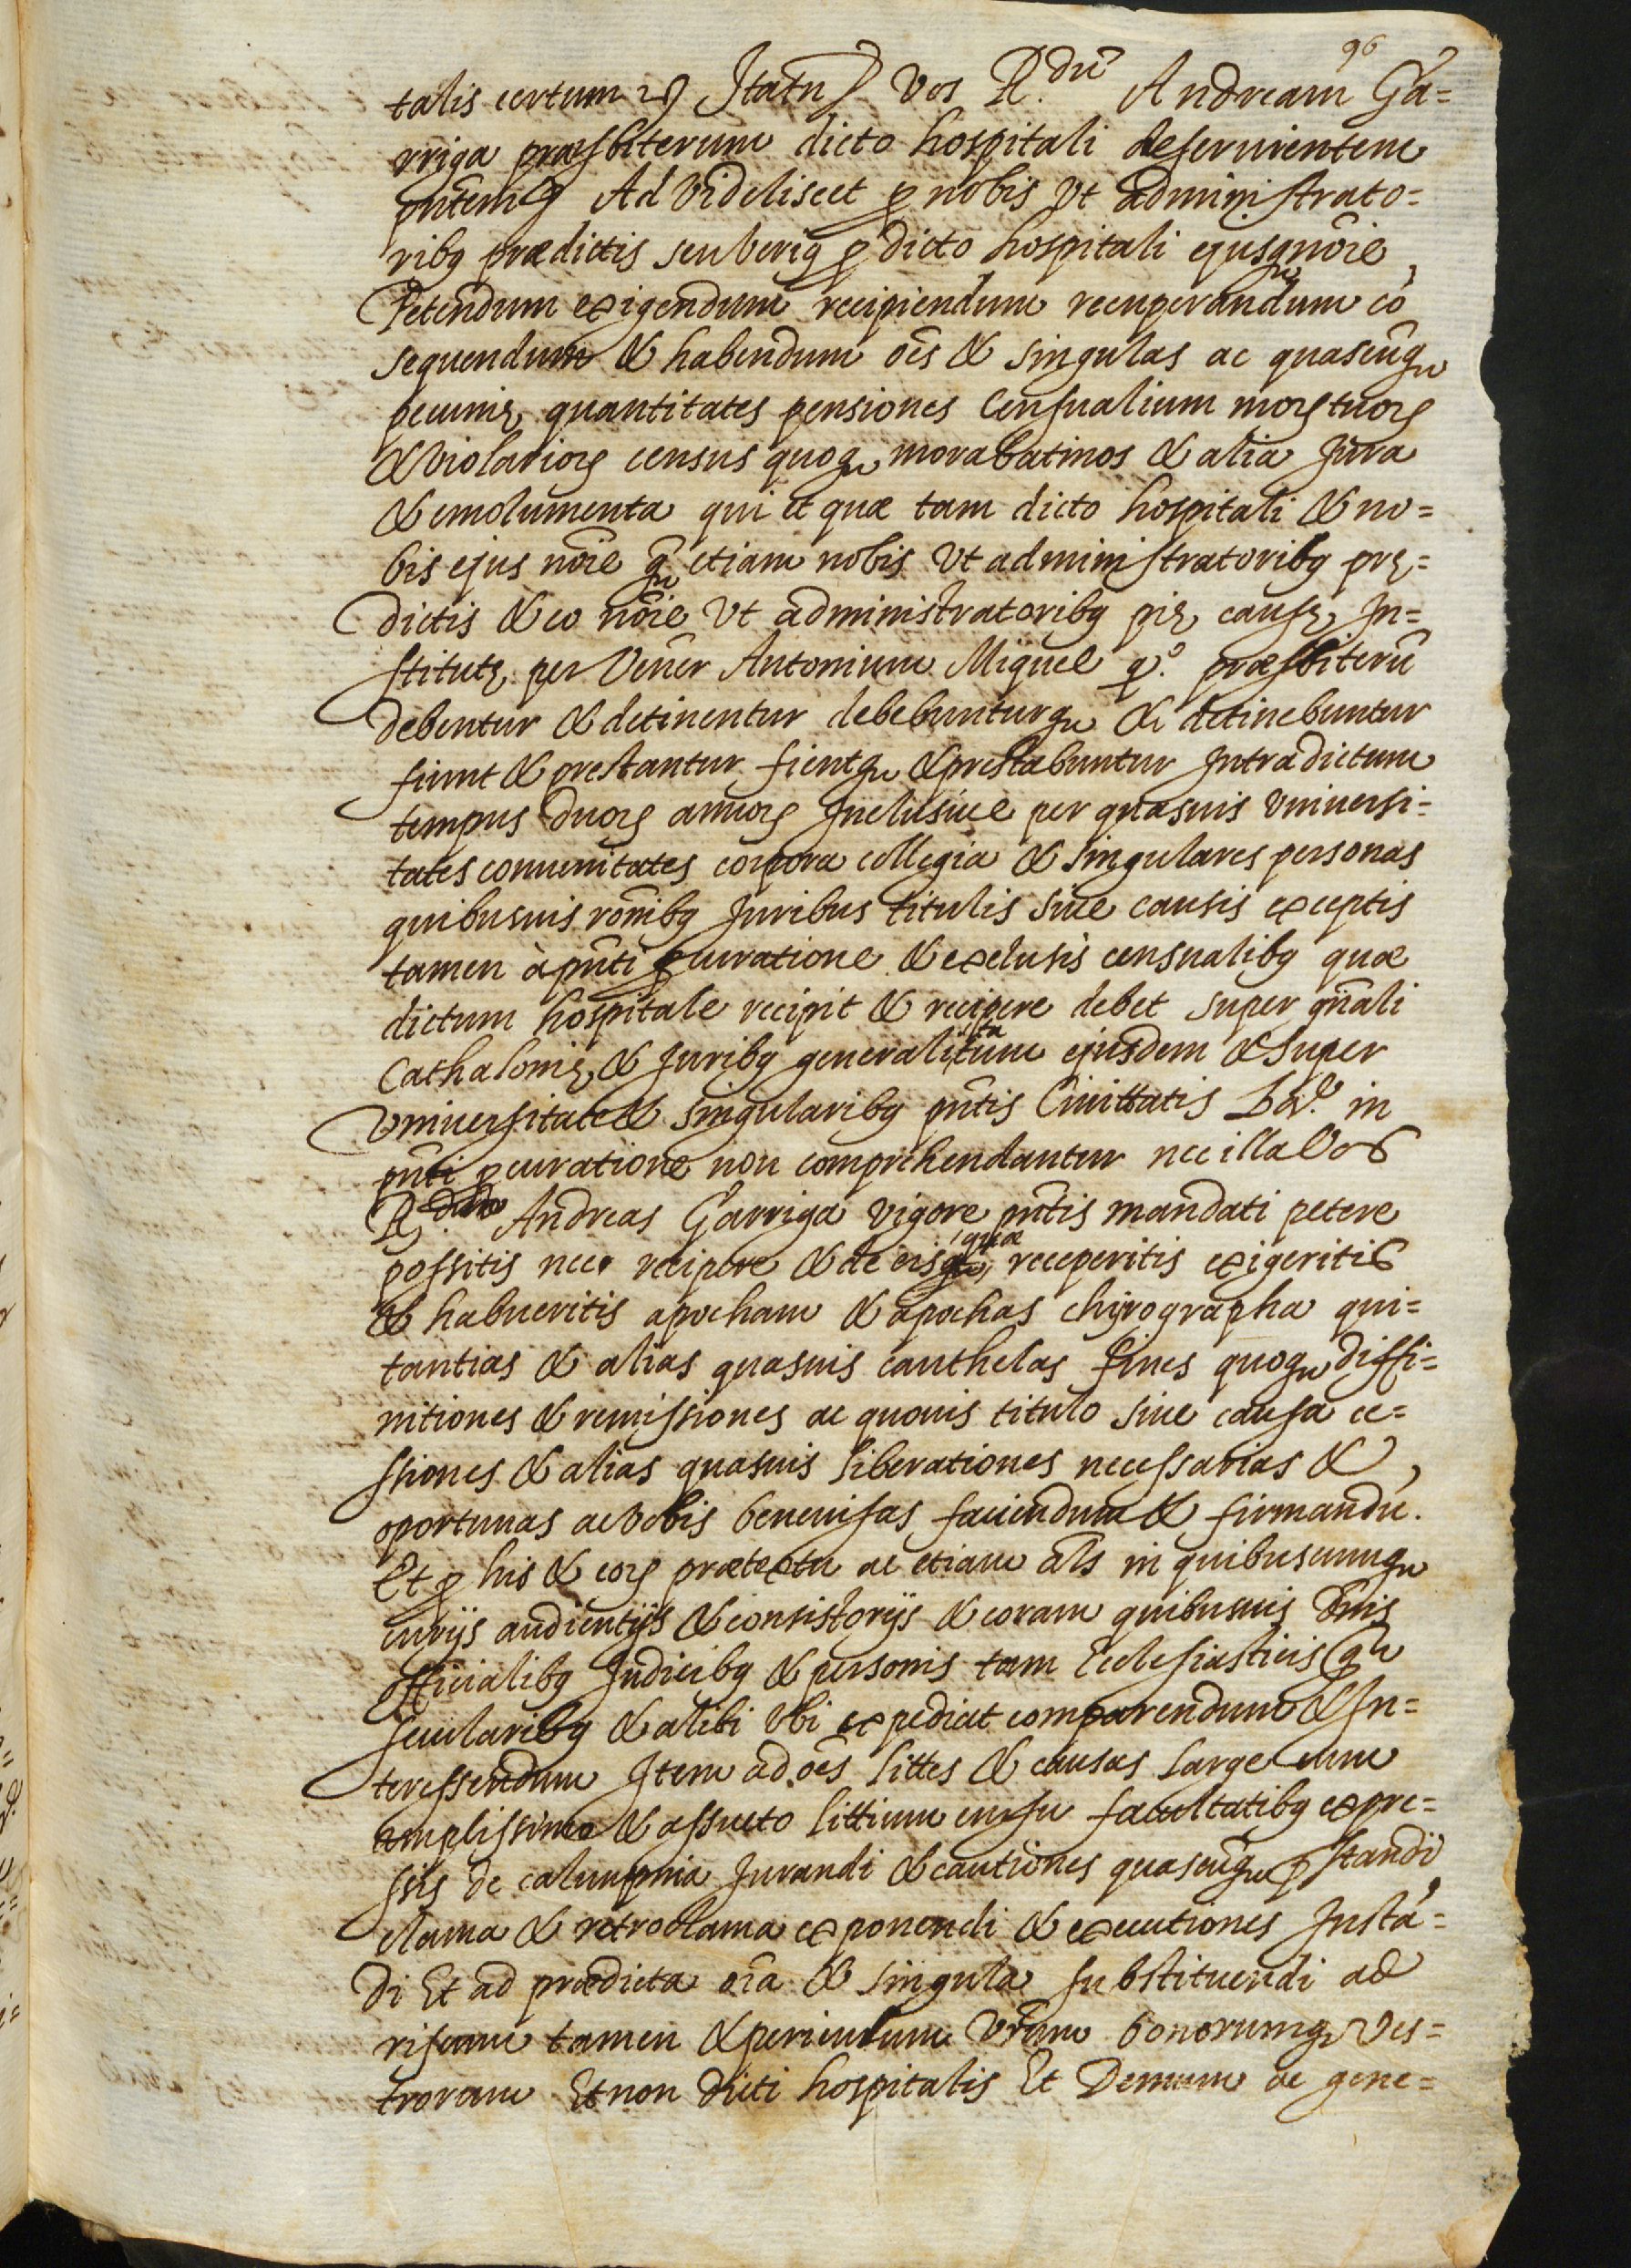 96
talis certum &c Itatn̄ Vos R.dū Andream Ga=
rriga præsbiterum dicto hospitali deseruientem
pn̄tem &c Ad Videliscet ꝑ nobis Vt administrato=
ribꝰ prædictis seu Veriꝰ ꝑ dicto hospitali ejusq nōie
Petendum exigendum recipiendum recuperandumqu cō
sequendum & habendum oēs & singulas ac quascūqu
pecunię quantitates pensiones Censualium mortuoꝝ
& Violarioꝝ census quoqu morabatinos & alia Jura
& emolumenta qui et quæ tam dicto hospitali & no=
bis ejus nōie qu etiam nobis Vt administratoribꝰ prę=
dictis & eo nōie Vt administratoribꝰ pię causę In=
stitutę per Vener Antonium Miquel qº. præsbiterū
debentur & detinentur debebunturqu & detinebuntur
fiunt & prestantur fientqu & prestabuntur Intra dictum
tempus duoꝝ annoꝝ Inclusiue per quasuis Vniuersi=
tates comunitates corpora collegia & singulares personas
quibusuis rōnibꝰ Juribus titulis siue causis exceptis
tamen à pn̄ti ꝓcuratione & exclusis censualibꝰ quæ
dictum hospitale recipit & recipere debet super gn̄ali
Cathalonię & Juribꝰ generalitatum ejusdem & super
Vniuersitate & singularibꝰ pn̄tis Ciuittatis Bar.ᵉ in
pn̄ti ꝓcuratione non comprehendantur nec illa Vos
R.dus Andreas Garriga vigore pn̄tis mandati petere
possitis nec recipere & de eis quæ receperitis exigeritis
& habueritis apocham & apochas chirographa qui=
tantias & alias quasuis cauthelas fines quoqu diffi=
nitiones & remissiones ac quouis titulo siue causa ce=
ssiones & alias quasuis liberationes necessarias &
oportunas ac Vobis beneuisas faciendum & firmandū.
Et ꝑ his & eoꝝ prætextu ac etiam als in quibuscumqu
curijs audientijs & consistorijs & coram quibusuis Dnis
officialibꝰ Judicibꝰ & personis tam Ecclesiasticis qu
secularibꝰ & alibi Vbi expediat comparendum & In=
teressendum Item ad oēs littes & causas large cum
amplissimo & assueto littium cursu facultatibꝰ expre=
ssis de calumpnia Jurandi & cautiones quascūqu pstandi
clama & retroclama exponendi & executiones Instā=
di Et ad prædicta oīa & singula substituendi ad
riscum tamen & periculum Vr̄um bonorumqu Ves=
trorum Et non dicti hospitalis Et Demum ac gene=